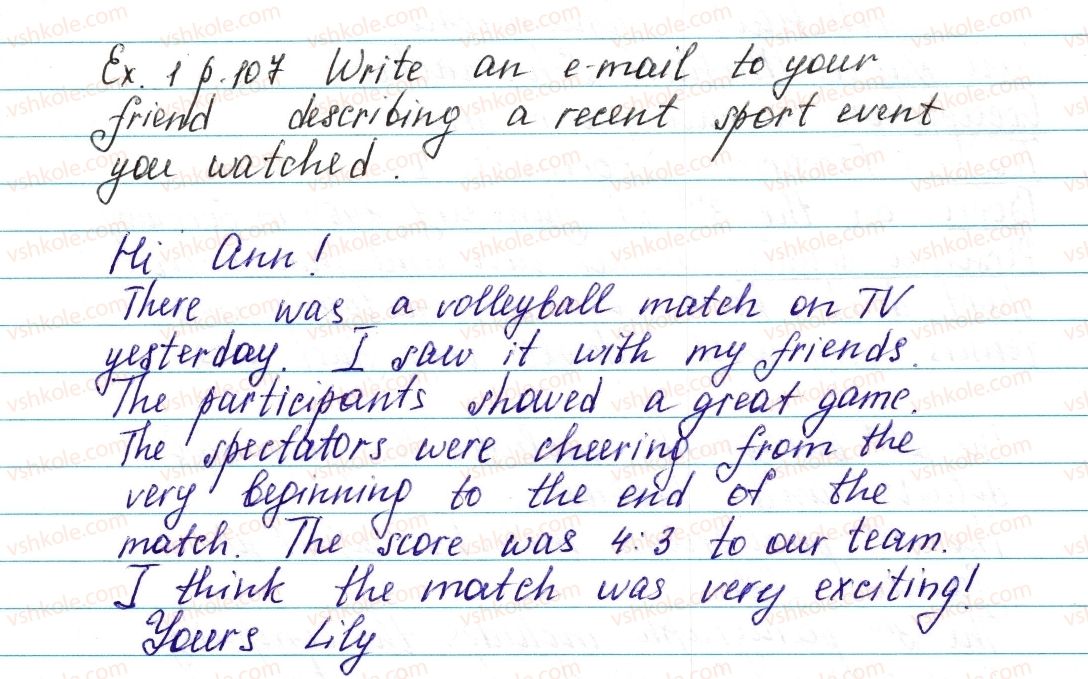 Ex. 1 p. 107 Write an e-mail to your
friend describing a recent sport event
you watched.
Hi Ann!
There was a volleyball match on TV
yesterday. I saw it with my friends.
The participants showed a great game.
The spectators were cheering from the
very beginning to the end of the
match. The score was 4:3 to our team.
I think the match was very exciting!
Yours Lily